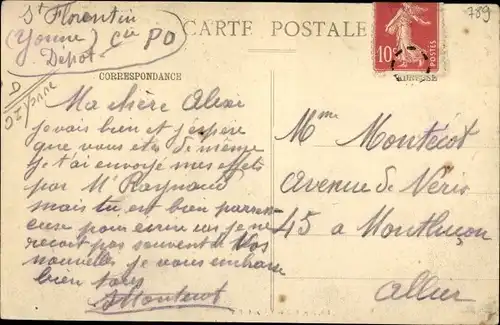 St Florentin
(Yonne) Cie PD
Dépot
Yonne
CARTE POSTALE
789
10c
POSTES
CORRESPONDANCE
Ma chère Alexi
je vais bien et j'espère
que vous etes de même
je t'ai envoyé mes effets
par Mr Raynaud
mais tu est bien parres-
seuse pour ecrire car je ne
recoit pas souvent de Vos
nouvelles je vous embrasse
bien tous
Montécot
Mme Montécot
Avenue de Néris
45 a Montluçon
Allier